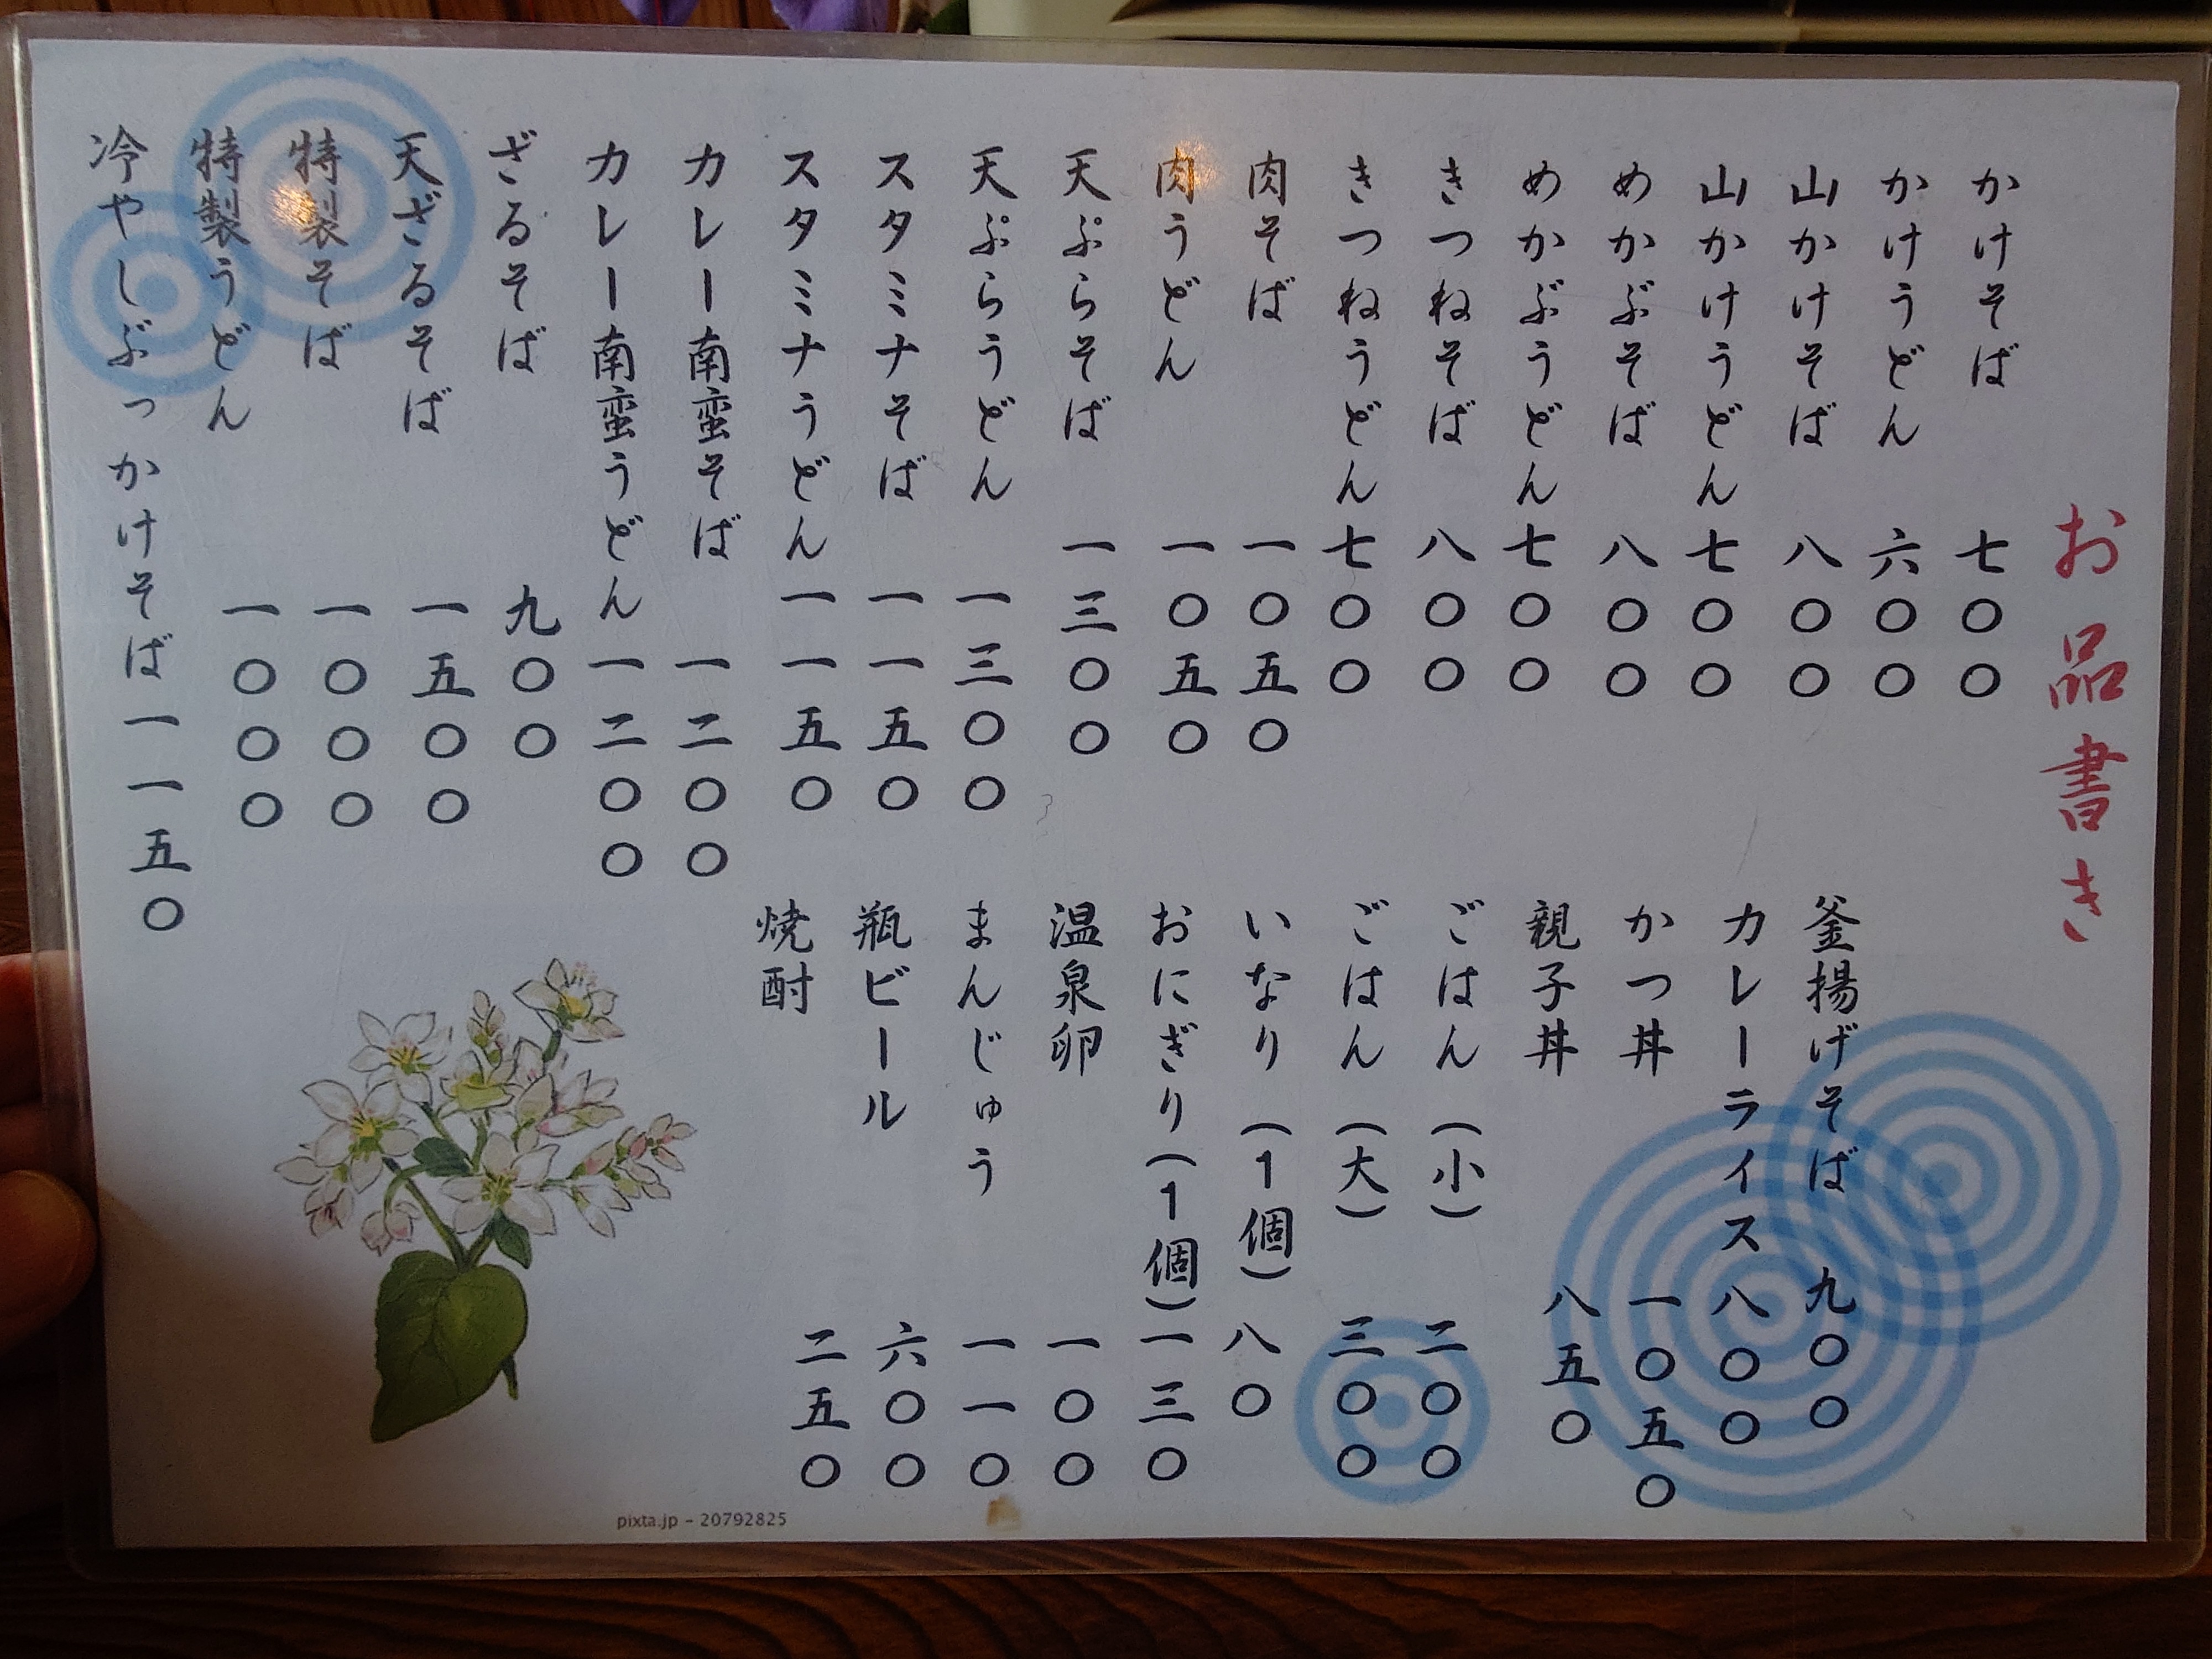 お品書き
かけそば 七〇〇
かけうどん 六〇〇
山かけそば 八〇〇
山かけうどん 七〇〇
めかぶそば 八〇〇
めかぶうどん 七〇〇
きつねそば 八〇〇
きつねうどん 七〇〇
肉そば 一〇五〇
肉うどん 一〇五〇
天ぷらそば 一三〇〇
天ぷらうどん 一三〇〇
スタミナそば 一一五〇
スタミナうどん 一一五〇
カレー南蛮そば 一二〇〇
カレー南蛮うどん 一二〇〇
ざるそば 九〇〇
天ざるそば 一五〇〇
特製そば 一〇〇〇
特製うどん 一〇〇〇
冷やしぶっかけそば 一一五〇
釜揚げそば 九〇〇
カレーライス 八〇〇
かつ丼 一〇五〇
親子丼 八五〇
ごはん(小) 二〇〇
ごはん(大) 三〇〇
いなり(1個) 八〇
おにぎり(1個) 一三〇
温泉卵 一〇〇
まんじゅう 一一〇
瓶ビール 六〇〇
焼酎 二五〇
pixta.jp - 20792825